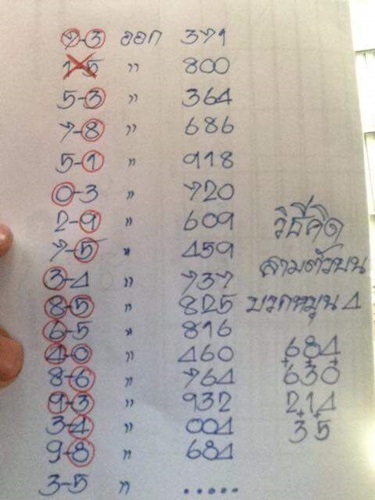 7-3 ออก 371
1-5 " 800
5-3 " 364
7-8 " 686
5-1 " 918
0-3 " 720
2-9 " 609
7-5 " 459
3-4 " 737
8-5 " 825
6-5 " 816
4-0 " 460
8-6 " 764
9-3 " 932
3-4 " 004
9-8 " 684
3-5 " .....
วิธีคิด
สามตัวบน
บวกหมุน 4
684
630
214
35